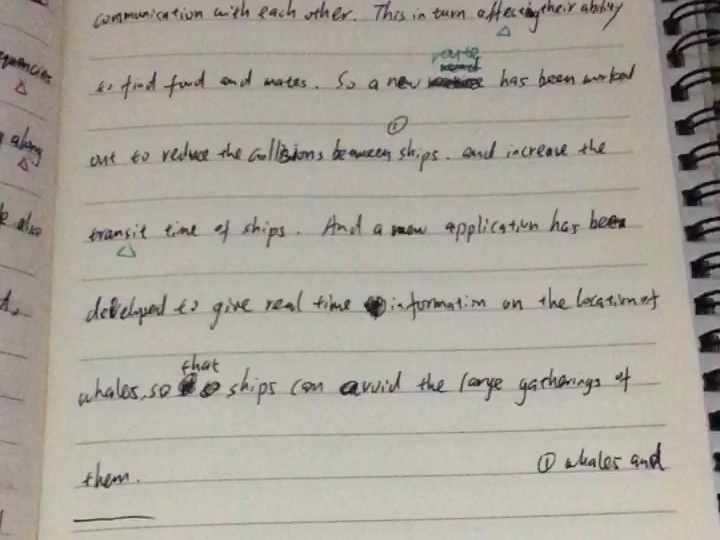 communication with each other. This in turn affecting their ability
quencies
route
to find food and mates. So a new has been worked
①
along
out to reduce the collisions between ships. and increase the
also
transit time of ships. And a new application has been
developed to give real time information on the location of
that
whales, so ships can avoid the large gatherings of
them.
① whales and